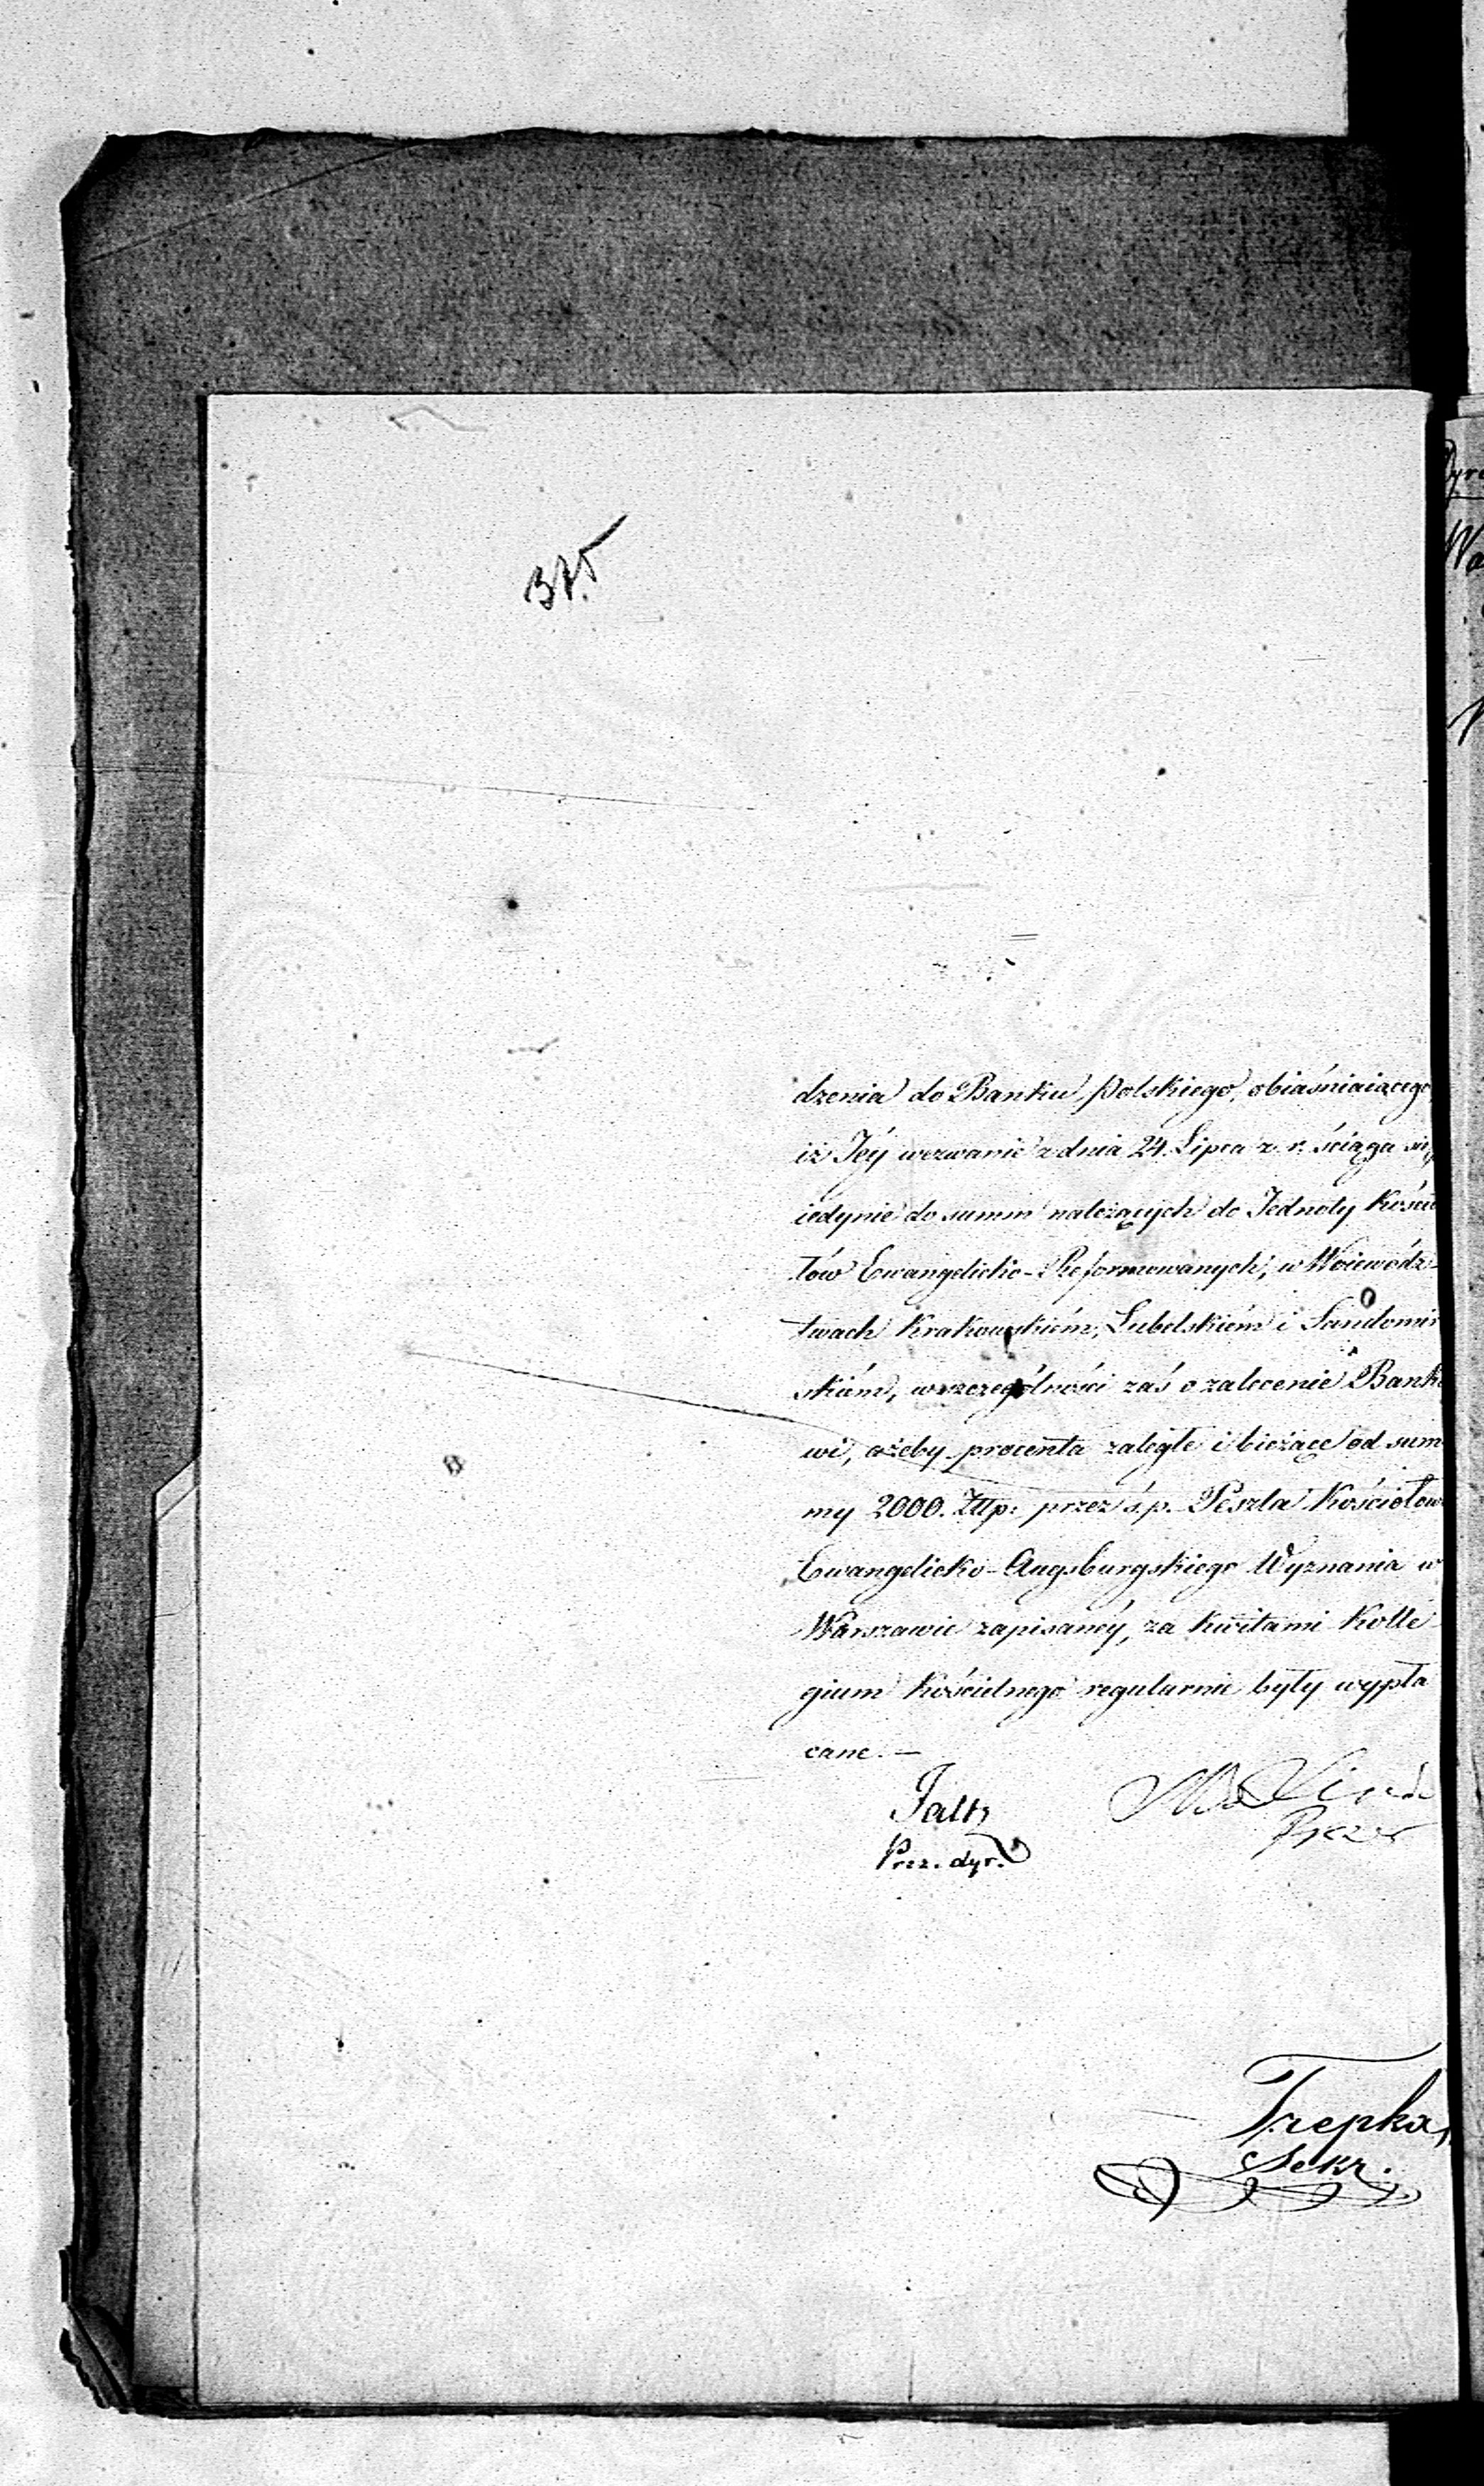 375
dzenia do Banku Polskiego, obiaśniaiącego,
iż Jéy wezwanie z dnia 24. Lipca z. r. ściąga się
iedynie do summ należących do Jednoty Kościo
łów Ewangelicko-Reformowanych, w Woiewódz-
twach Krakowskiém, Lubelskiém i Sandomir
skiém, wszczególności zaś o zalecenie Banko
wi, ażeby procenta zaległe i bieżące od sum
my 2000. Złlp: przez ś.p. Peszla Kościołowi
Ewangelicko-Augsburgskiego Wyznania w
Warszawie zapisanéy, za kwitami Kolle
gium Kościelnego regularnie były wypła
cane. —
Prezes
Prez. dyr.
Trepka,
Sekr.